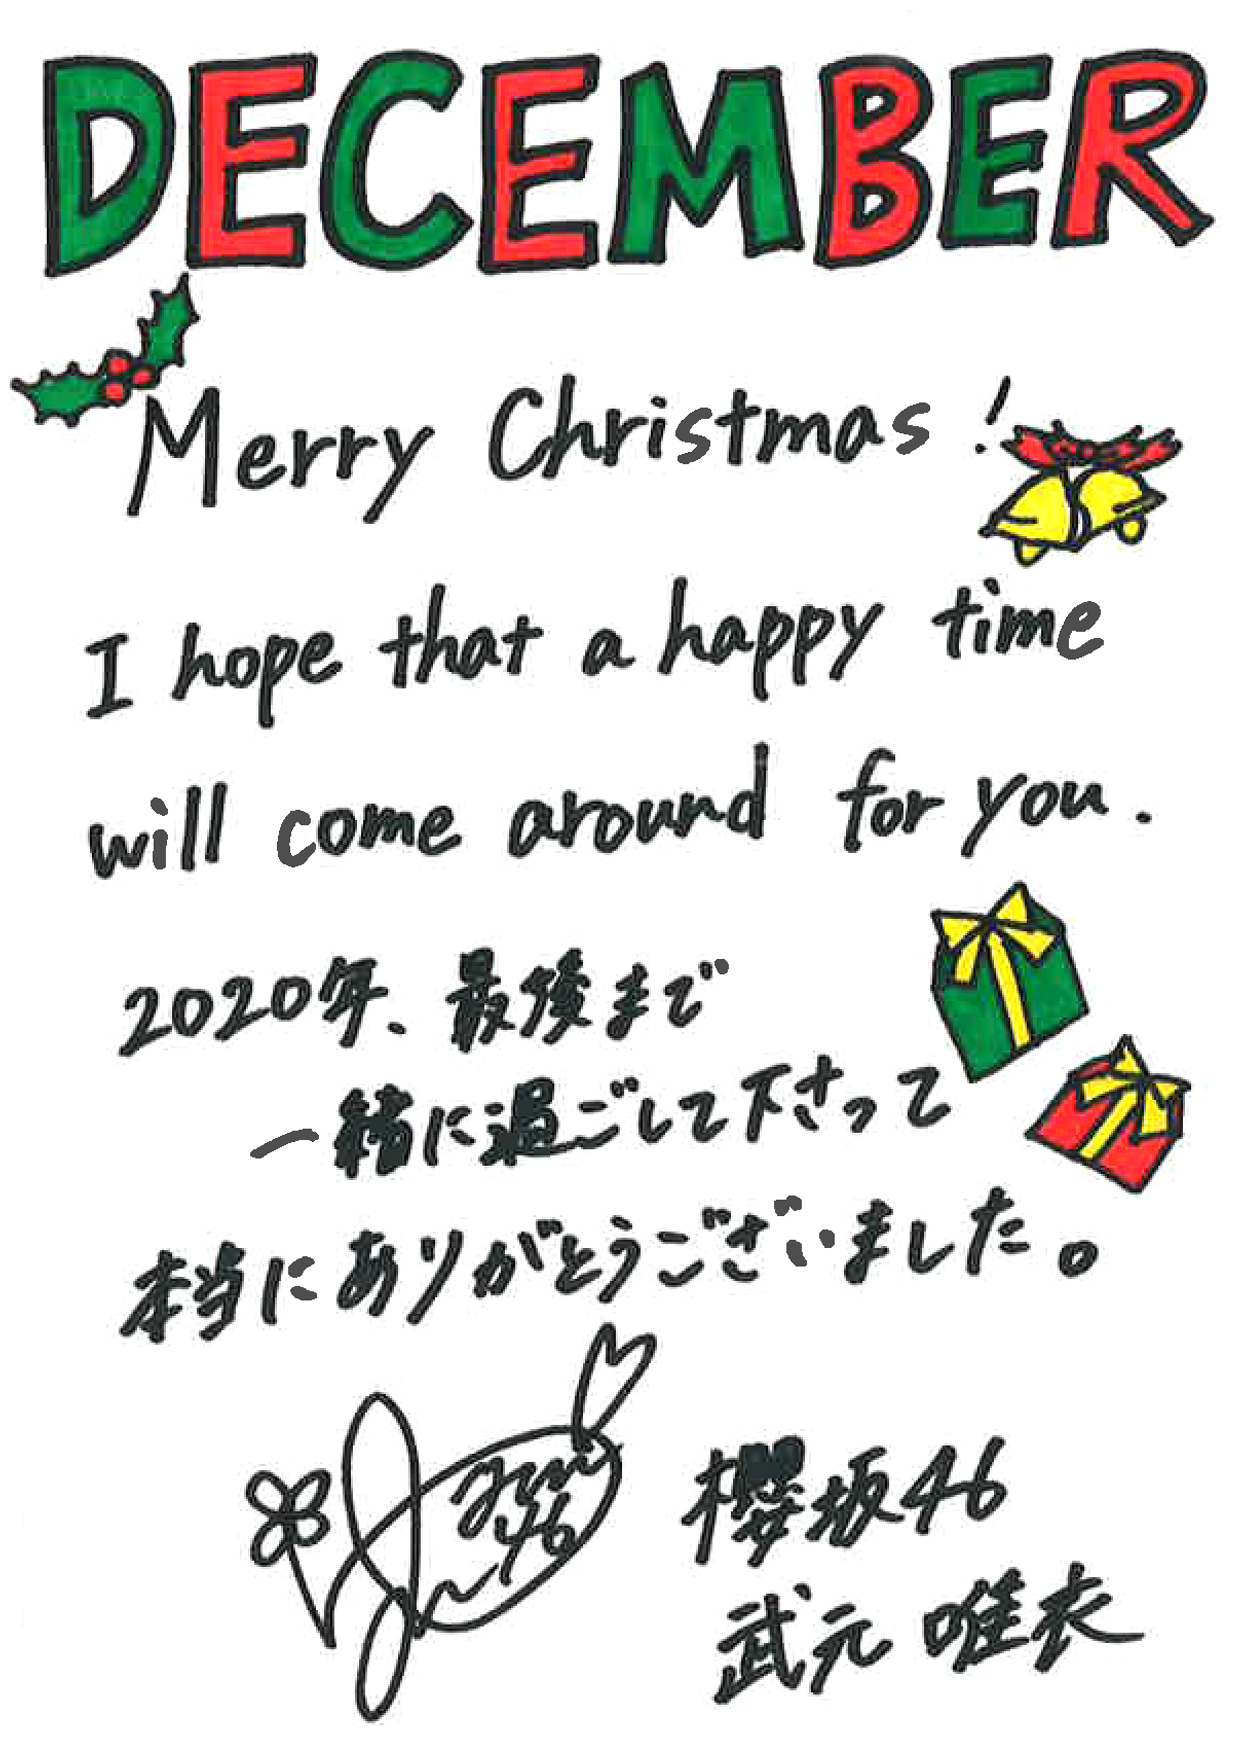 DECEMBER
Merry Christmas!
I hope that a happy time
will come around for you.
2020年、最後まで
一緒に過ごして下さって
本当にありがとうございました。
櫻坂46
武元 唯衣